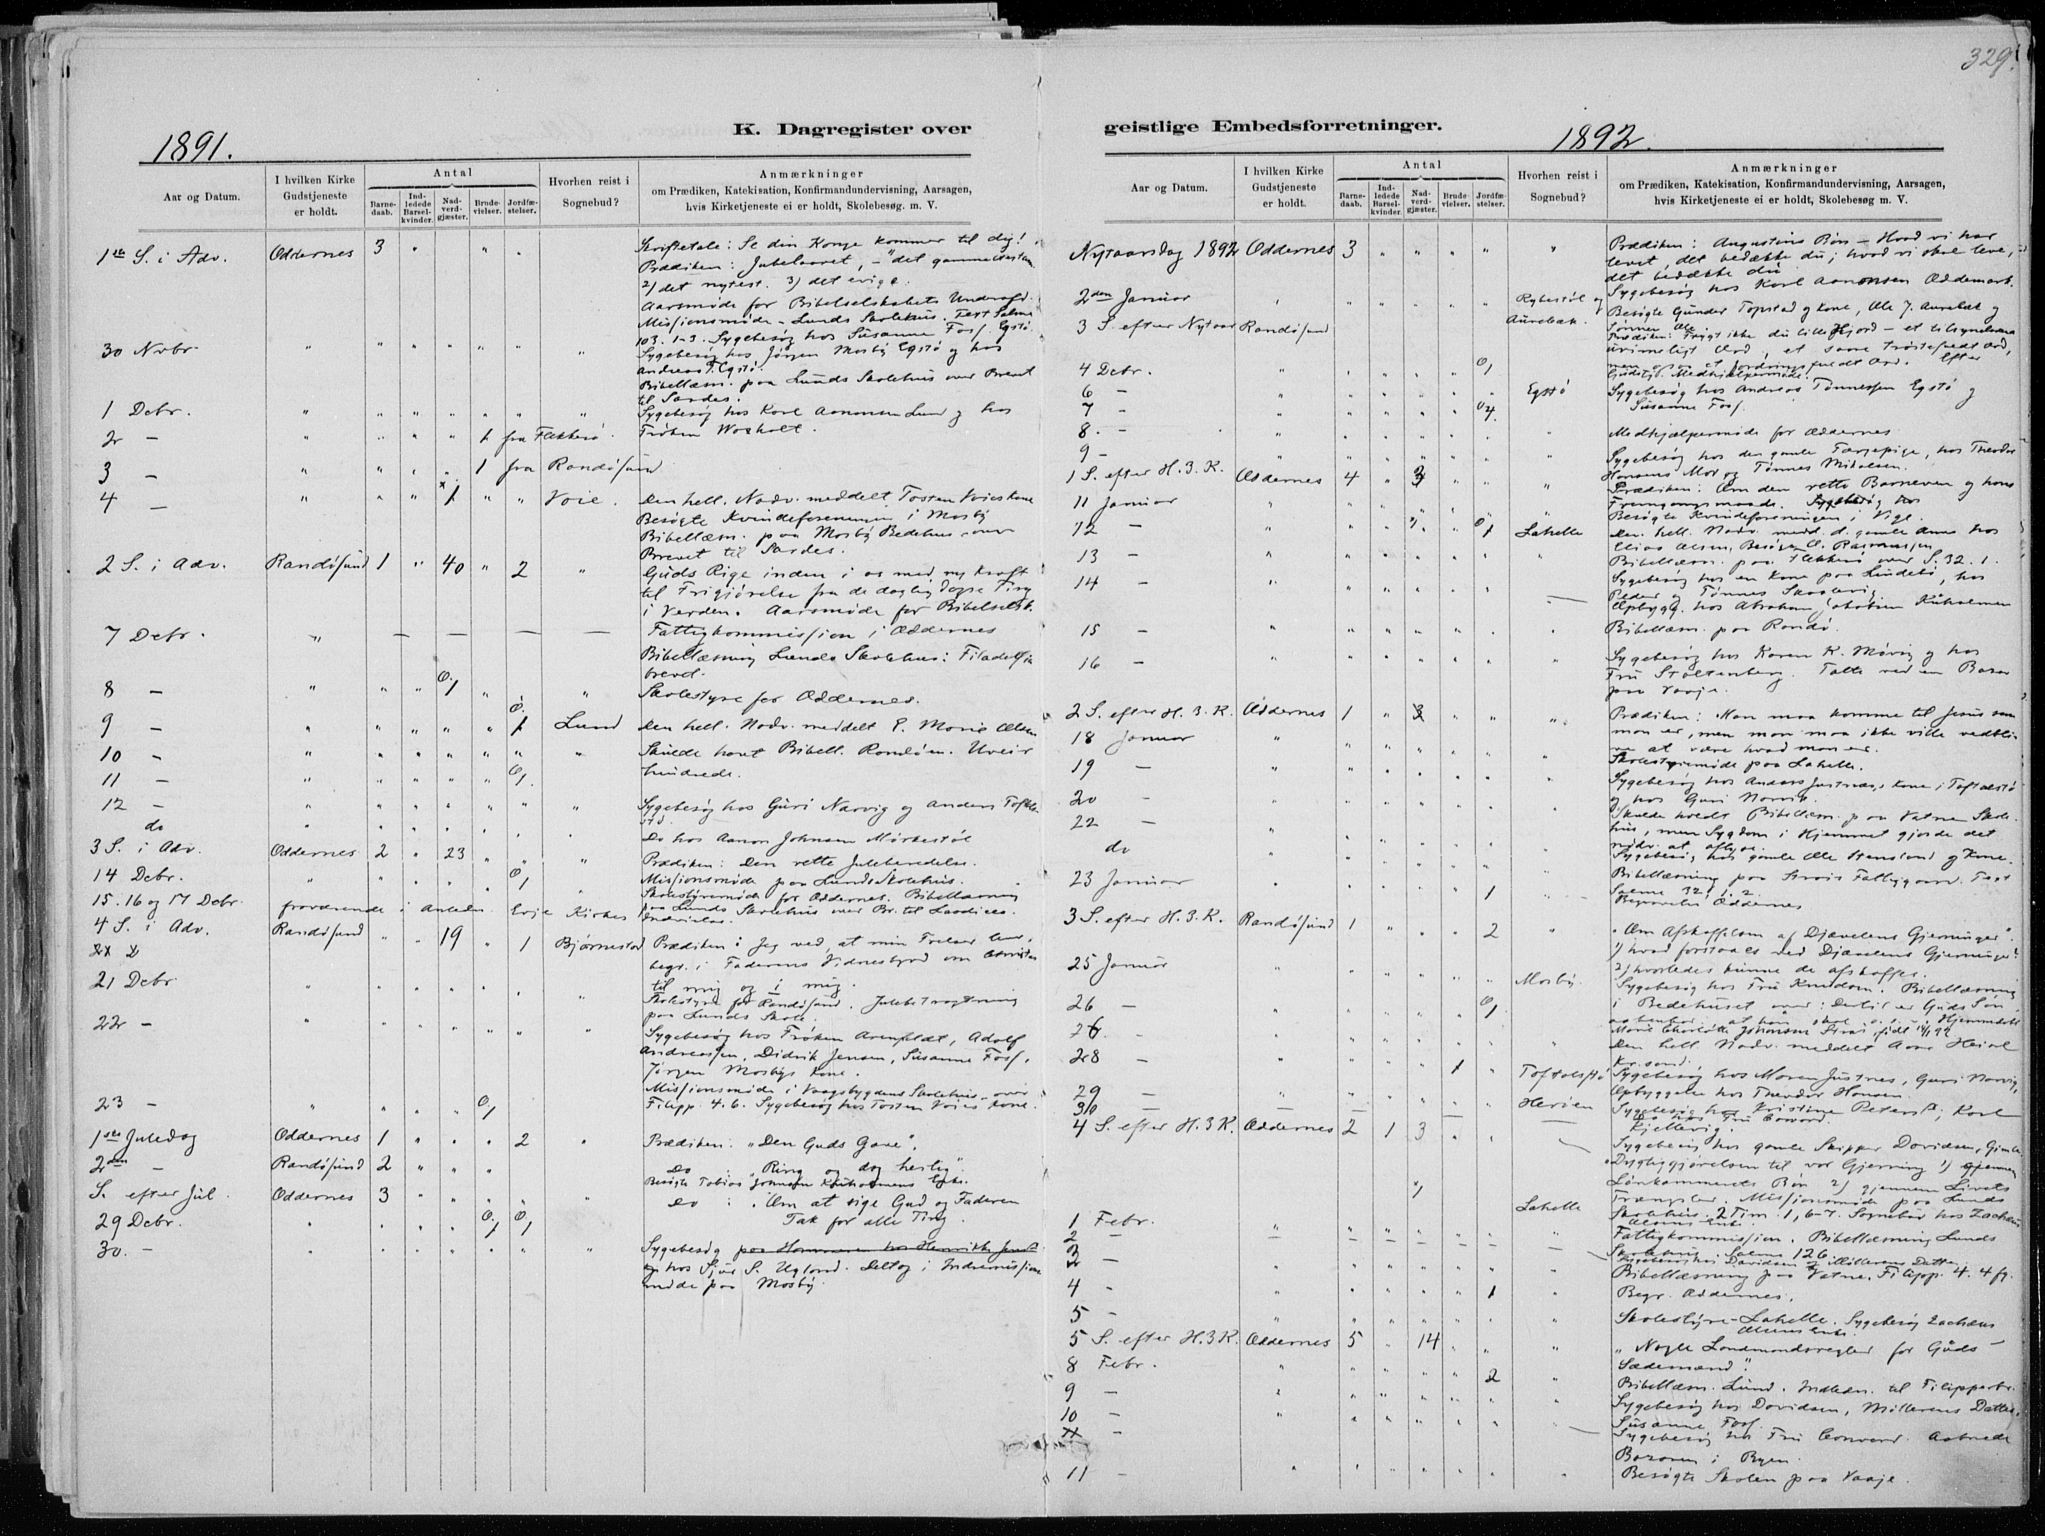 329.
K. Dagregister over
1891.
Aar og Datum.
I hvilken Kirke Gudstjeneste er holdt.
Antal
Barne-daab.
Ind-ledede Barsel-kvinder.
Nad-verd-gjæster.
Brude-vielser.
Jordfæ-stelser.
Hvorhen reist i Sognebud?
Anmærkninger
om Prædiken, Katekisation, Konfirmandundervisning, Aarsagen,
hvis Kirketjeneste ei er holdt, Skolebesøg. m. V.
1ste S. i Adv. Oddernes 3 " " " Skriftetale: Se din Konge kommer til dig!
Prædiken: Jubelaaret, - "det gammeltestam
2) det nytest. 3) det evige.
Aarsmøde for Bibelselskabets Underafd.
Missionsmøde - Lunds Skolehus. Text Salme
103. 1-3. Sygebesøg hos Susanne Foss, Egstø.
30 Novbr. " " " " " " " Sygebesøg hos Jørgen Mosby Egstø og hos
Andreas T. Egstø.
Bibellæsn. paa Lunds Skolehus over Brevet
til Sardes.
1 Debr. " " " " " " " Sygebesøg hos Karl Aanonsen Lund og hos
2 — " " " " 1 fra Flekkerø. Frøken
3 — " " " " 1 fra Randøsund
4 — " " " 1 " " Voie. Den hell. Nadv. meddelt Tosten Voies Kone
Besøgte Kvindeforeningen i Mosby
Bibellæsn. paa Mosby Bedehus over
Brevet til Sardes.
2 S. i Adv. Randøsund 1 " 40 " 2 " Guds Rige inden i os med ny Kraft
til Frigjørelse fra de daglig Ting
i Verden. Aarsmøde for Bibelselsk.
7 Debr. " — — — — — — Fattigkommission i Oddernes
Bibellæsning Lunds Skolehus: Filadelfia
brevet.
8 — " " " 1 " " Skolestyre for Oddernes.
9 — " " " " " 1 Lund Den hell. Nadv. meddelt E. Marie Olsen
10 — " " " " " " " Skulde havt Bibell. Randøen. Uveir
11 — " " " " " 1 hindrede.
12 — " " " " " " " Sygebesøg hos Guri Narvig og Anders Toftdal
stø.
do " " " " " " " Do hos Aanon Johnsen Mørkestøl
3 S. i Adv. Oddernes 2 " 23 " " " Prædiken: Den rette Juleberedelse.
14 Debr. " " " " " 1 Missionsmøde paa Lunds Skolehus.
15. 16 og 17 Debr fraværende i Anledn. Evje Kirkes Indvielse. Skolestyremøde for Oddernes. Bibellæsning
paa Lunds Skolehus over Br. til Laodicea.
4 S. i Adv. Randøsund " " 19 " 1 Bjørnestad Prædiken: Jeg ved, at min Frelser lever,
begr. i Faderens Vidnesbyrd om Christus
til mig og i mig.
21 Debr " " " " " " " Skolestyre for Randøsund. Julebetragtning
paa Lunds Skole.
22 — " " " " " " " Sygebesøg hos Frøken Arenfeldt, Adolf
Andreassen, Didrik Jensen, Susanne Foss,
Jørgen Mosbys Kone.
Missionsmøde i Vaagsbygdens Skolehus over
23 — " " " " 1 Filipp. 4. 6. Sygebesøg hos Tosten Voies Kone.
1ste Juledag Oddernes 1 " " " 2 " Prædiken: "Den Guds Gave".
2den — Randøsund 2 " " " Do : "Ring og dag herlig".
Besøgte Tobias Johnsen Kuholmens
S. efter Jul. Oddernes 3 " " " " " Do : "Om at sige Gud og Faderen
Tak for alle Ting.
29 Debr. " " " " 1 1
30. — " " " " " " " Sygebesøg paa Hamresan hos Henrik
og hos Sjur S. Ugland. Deltog i Indremissions
møde paa Mosby.
geistlige Embedsforretninger.
1892.
Aar og Datum.
I hvilken Kirke Gudstjeneste er holdt.
Antal
Barne-daab.
Ind-ledede Barsel-kvinder.
Nad-verd-gjæster.
Brude-vielser.
Jordfæ-stelser.
Hvorhen reist i Sognebud?
Anmærkninger
om Prædiken, Katekisation, Konfirmandundervisning, Aarsagen,
hvis Kirketjeneste ei er holdt, Skolebesøg m. V.
Nytaarsdag 1892 Oddernes 3 " " " " " Prædiken: Augustins Bøn - Hvad vi har
levet, det bedække du; hvad vi skal leve,
det bedække du
2den Januar " " " " " " Rybestøl og Aurebæk. Sygebesøg hos Karl Aanonsen Oddemark.
Besøgte Gunder Topstad og Kone, Ole J. Aurebæk og
Sønnen Ole
3 S. efter Nytaar Randøsund Prædiken: Frygt ikke du lille Hjord - et tilsyneladende
urimeligt Ord, et sare trøstefuldt Ord,
men ogsaa et fordringsfuldt Ord. Efter
4 Debr. " " " " " 1 Gudstj. Medhjælpermøde.
6 — " " " " " " Egstø Sygebesøg hos Andreas Tønnessen Egstø og
7 — " " " " " 4. Susanne Foss.
8. — " " " " " " " Medhjælpermøde for Oddernes
9 — " " " " " " " Sygebesøg hos den gamle Færgepige, hos Theodor
Hansens Mor og Tønnes Mikalsen.
1 S. efter H. 3. K. Oddernes 4 " 3 " " " Prædiken: Om den rette Barneven og hans
Fremgangsmaade.
11 Januar " " " " " " Besøgte Kvindeforeningen i Vige.
12 — " " " 1 " 1 Lahelle Den hell. Nadv. medd. d. gamle Anne hos
Elias Olsen, Besøgte O. Rasmussen
13 — " " " " " " " Bibellæsn. paa Flekkerø over S. 32. 1.
14 — " " " " " " Sygebesøg hos en Kone paa Lindebø, hos
Peder og Tønnes Skaalevig.
— Opbygg. hos Abraham Jakobsen Kuholmen
15 — " " " " " " " Bibellæsn. paa Randø.
16 — " " " " " " " Sygebesøg hos Karen K. Møvig og hos
Fru Stoltenberg. Talte ved en Basar
paa Vaaje.
2 S. efter H. 3. K. Oddernes 1 " 3 " " " Prædiken: Man maa komme til Jesus som
man er, men man maa ikke ville vedbli-
ve at være hvad man er.
18 Januar " " " " " " " Skolestyremøde paa Lahelle.
19 — " " " " " " " Sygebesøg hos Anders Justnæs, Kone, Toftdalstø
og hos Guri Narvig.
20 — " " " " " " " Skulde holdt Bibellæsn. paa Vatne Skole-
hus, men Sygdom i Hjemmet gjorde det
nødv. at aflyse.
22 — " " " " " "
do " " " " " " Sygebesøg hos gamle Ole Stensland og Kone.
23 Januar " " " " " 1 " Bibellæsning paa Strais Fattiggaard. Text
Salme 32: 1. 2.
Begravelse Oddernes
3 S. efter H. 3. K. Randøsund 1 " " " 2 " "Om Afskaffelsen af Djævelens Gjerninger".
1) hvad forstaaes ved Djævelens Gjerninger?
2) hvorledes kunne de afskaffes.
25 Januar " " " " " " Mosby. Sygebesøg hos Fru Knudsen. Bibellæsning
i Bedehuset over: Dertil er Guds Søn
26 — " " " " " 1
26. " " " " " " " Marie Charlotte Johansen Strai, født
28 — " " " " 1 " Den hell. Nadv. meddelt Hejvel
Kr.sand.
29 — " " " " " " Toftdalstø Sygebesøg hos Maren Justnes, Guri Narvig,
Opbyggelse hos Theodor Hansen.
30 — — — — — — — Herøen Sygebesøg hos Kristine Peters, Karl
Kjellevig.
4 S. efter H. 3 K. Oddernes 2 1 3 " " Sygebesøg hos gamle Skipper Davidsen, Gimle
Dygtiggjørelsen til vor Gjerning 1) gjennem
Lønkammerets Bøn 2) gjennem Livets
Trængsler. Missionsmøde paa Lunds
Skolehus. 2 Tim. 1, 6-7. Sognebud hos Zachæus
Olsens Enke.
1 Febr. " " " 1 " " Lahelle
2 — — — — — — — — Fattigkommission. Bibellæsning Lunds
Skolehus. Salme 126.
3 — " " " " " " " Sygebesøg hos Davidsen og Møllerens Datter.
Bibellæsning paa Vatne. Filipp. 4. 4 fg.
4 - " " " " " 1 " Begr. Oddernes.
5 — " " " " " " " Skolestyre - Lahelle. Sygebesøg Zachæus
Olsens Enke.
5 S. efter H. 3 K. Oddernes 5 " 14 " " " "Nogle Landmandsregler for Guds
Sædemænd".
8 Febr. " " " " " 2 " Bibellæsn. Lund. Indledn. til Filipperbr.
9 — " " " " " " " Sygebesøg hos Davidsen, Møllerens Datter,
Susanne Foss.
10 — " " " " " " — Sygebesøg hos Fru Conrad. Aabnede
Basaren i Byen.
11 — " " " " " " " Besøgte Skolen paa Vaaje.